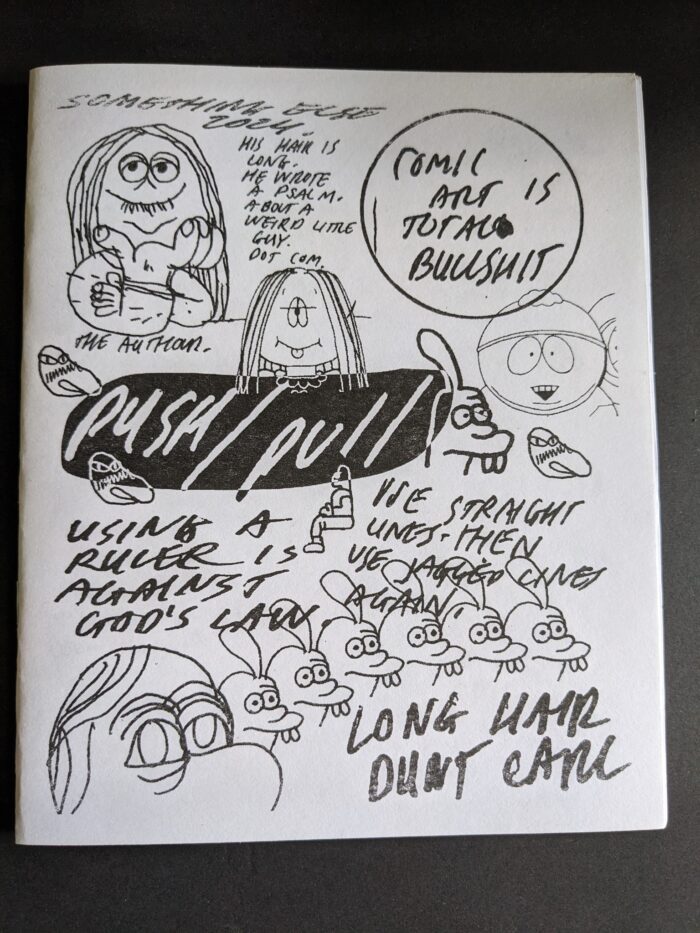 SOMETHING ELSE
2024.
HIS HAIR IS
LONG.
HE WROTE
A PSALM.
ABOUT A
WEIRD LITTLE
GUY.
DOT COM.
COMIC
ART IS
TOTAL
BULLSHIT
THE AUTHOR.
PUSH/PULL
USING A
RULER IS
AGAINST
GOD'S LAW.
USE STRAIGHT
LINES. THEN
USE JAGGED LINES
AGAIN.
LONG HAIR
DUNT CARE